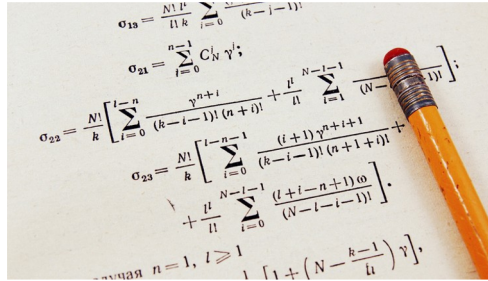 σ₁₃ = N! lˡ / l! k ∑ i=0 (k−i−1)!
σ₂₁ = ∑ i=0 n−1 Cⁱ_N γⁱ;
σ₂₂ = N!/k [ ∑ i=0 l−n γⁿ⁺ⁱ / (k−i−1)! (n+i)! + lˡ/l! ∑ i=1 N−l−1 / (N− −1)! ];
σ₂₃ = N!/k [ ∑ i=0 l−n−1 (i+1) γⁿ⁺ⁱ⁺¹ / (k−i−1)! (n+1+i)! +
+ lˡ/l! ∑ i=0 N−l−1 (l+i−n+1) ω / (N−l−i−1)! ].
лучая n=1, l⩾1
[1 + (N − k−1 / ) γ],